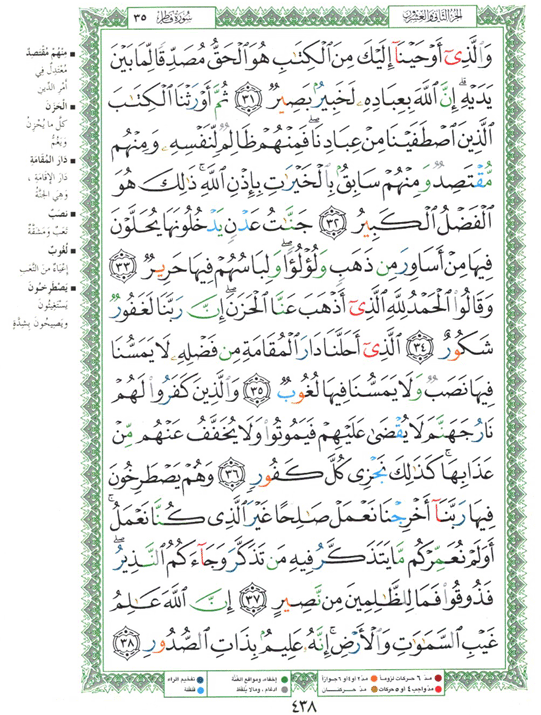 الجزء الثاني والعشرون
سورة فاطر ٣٥
وَالَّذِي أَوْحَيْنَا إِلَيْكَ مِنَ الْكِتَابِ هُوَ الْحَقُّ مُصَدِّقًا لِمَا بَيْنَ
يَدَيْهِ إِنَّ اللَّهَ بِعِبَادِهِ لَخَبِيرٌ بَصِيرٌ ٣١ ثُمَّ أَوْرَثْنَا الْكِتَابَ
الَّذِينَ اصْطَفَيْنَا مِنْ عِبَادِنَا فَمِنْهُمْ ظَالِمٌ لِنَفْسِهِ وَمِنْهُمْ
مُقْتَصِدٌ وَمِنْهُمْ سَابِقٌ بِالْخَيْرَاتِ بِإِذْنِ اللَّهِ ذَلِكَ هُوَ
الْفَضْلُ الْكَبِيرُ ٣٢ جَنَّاتُ عَدْنٍ يَدْخُلُونَهَا يُحَلَّوْنَ
فِيهَا مِنْ أَسَاوِرَ مِنْ ذَهَبٍ وَلُؤْلُؤًا وَلِبَاسُهُمْ فِيهَا حَرِيرٌ ٣٣
وَقَالُوا الْحَمْدُ لِلَّهِ الَّذِي أَذْهَبَ عَنَّا الْحَزَنَ إِنَّ رَبَّنَا لَغَفُورٌ
شَكُورٌ ٣٤ الَّذِي أَحَلَّنَا دَارَ الْمُقَامَةِ مِنْ فَضْلِهِ لَا يَمَسُّنَا
فِيهَا نَصَبٌ وَلَا يَمَسُّنَا فِيهَا لُغُوبٌ ٣٥ وَالَّذِينَ كَفَرُوا لَهُمْ
نَارُ جَهَنَّمَ لَا يُقْضَى عَلَيْهِمْ فَيَمُوتُوا وَلَا يُخَفَّفُ عَنْهُمْ مِنْ
عَذَابِهَا كَذَلِكَ نَجْزِي كُلَّ كَفُورٍ ٣٦ وَهُمْ يَصْطَرِخُونَ
فِيهَا رَبَّنَا أَخْرِجْنَا نَعْمَلْ صَالِحًا غَيْرَ الَّذِي كُنَّا نَعْمَلُ
أَوَلَمْ نُعَمِّرْكُمْ مَا يَتَذَكَّرُ فِيهِ مَنْ تَذَكَّرَ وَجَاءَكُمُ النَّذِيرُ
فَذُوقُوا فَمَا لِلظَّالِمِينَ مِنْ نَصِيرٍ ٣٧ إِنَّ اللَّهَ عَالِمُ
غَيْبِ السَّمَاوَاتِ وَالْأَرْضِ إِنَّهُ عَلِيمٌ بِذَاتِ الصُّدُورِ ٣٨
مِنْهُمْ مُقْتَصِدٌ
مُعْتَدِلٌ فِي
أَمْرِ الدِّينِ
الْحَزَنَ
كُلَّ مَا يُحْزِنُ
وَيَغُمُّ
دَارَ الْمُقَامَةِ
دَارَ الإِقَامَةِ،
وَهِيَ الْجَنَّةُ
نَصَبٌ
تَعَبٌ وَمَشَقَّةٌ
لُغُوبٌ
إِعْيَاءٌ مِنَ التَّعَبِ
يَصْطَرِخُونَ
يَسْتَغِيثُونَ
وَيَصِيحُونَ بِشِدَّةٍ
مدّ ٦ حركات لزوماً
مدّ ٢ أو ٤ أو ٦ جوازاً
إخفاء، ومواقع الغنّة
تفخيم الراء
مدّ واجب ٤ أو ٥ حركات
مدّ حركتان
ادغام، ومالا يلفظ
قلقلة
٤٣٨